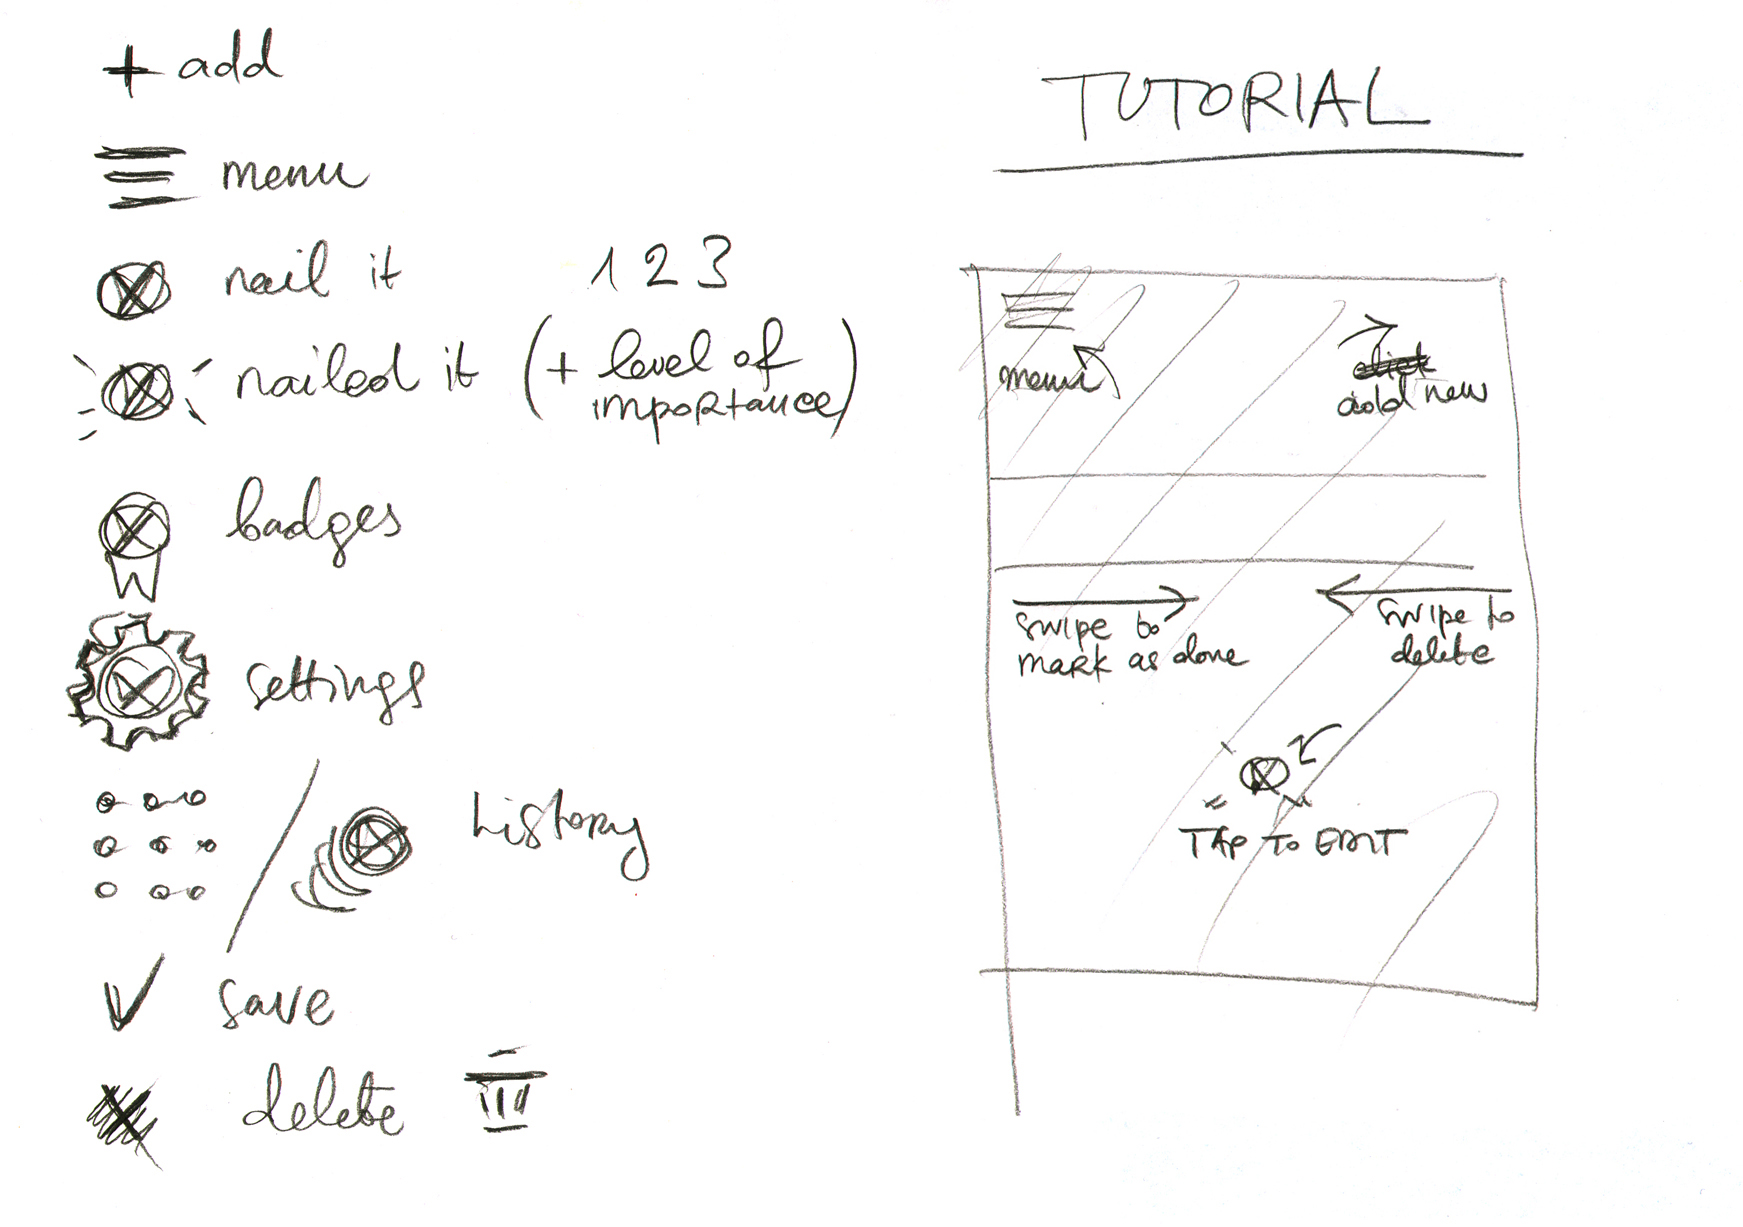 + add
menu
nail it 1 2 3
nailed it (+ level of
importance)
badges
settings
history
save
delete
TUTORIAL
menu
add new
swipe to
mark as done
swipe to
delete
TAP TO EDIT